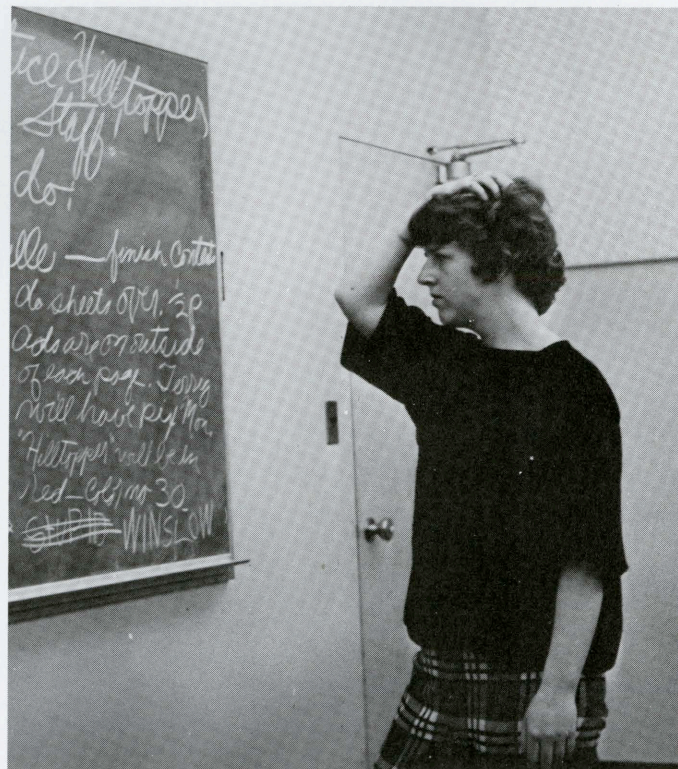 tice Hilltopper
Staff.
do:
elle — finish Contest
do sheets over. 2p
Ads are on outside
of each page. Torrey
will have pig Mon.
"Hilltopper" will be in
Red — Color no 30
WINSLOW